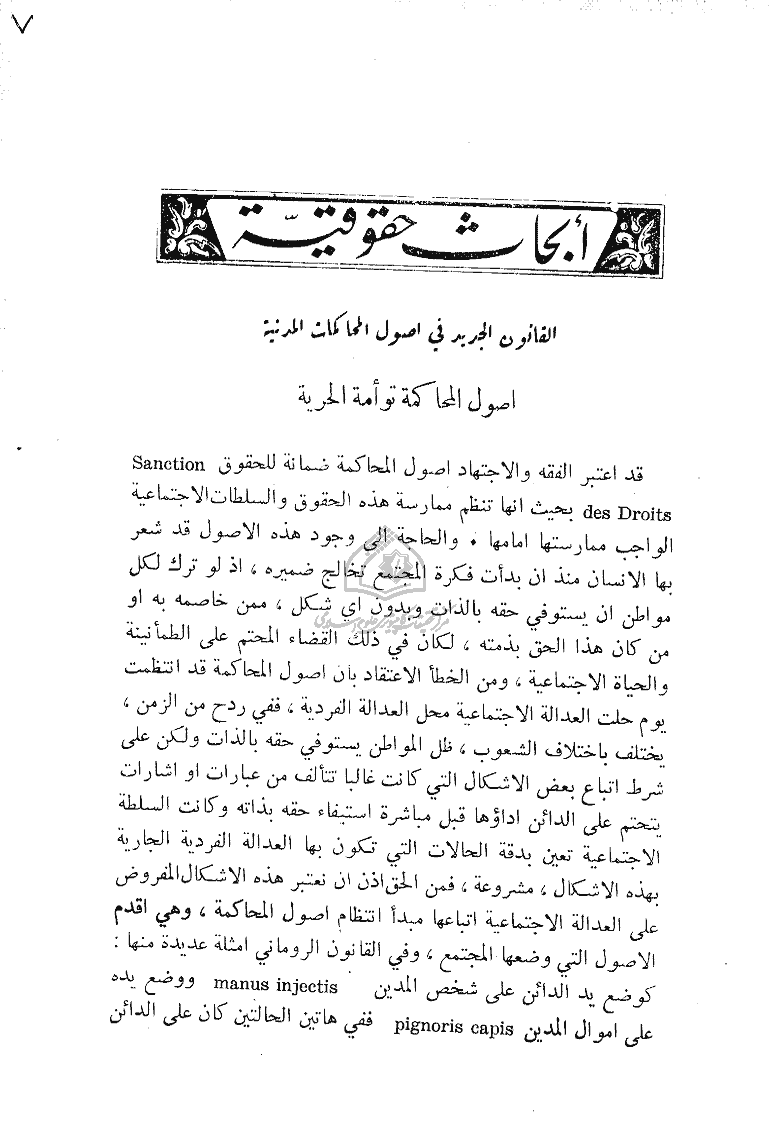 ٧
أبحاث حقوقيّة
القانون الجديد في اصول المحاكمات المدنية
اصول المحاكمة توأمة الحرية
قد اعتبر الفقه والاجتهاد اصول المحاكمة ضمانة للحقوق Sanction
des Droits بحيث انها تنظم ممارسة هذه الحقوق والسلطات الاجتماعية
الواجب ممارستها امامها . والحاجة الى وجود هذه الاصول قد شعر
بها الانسان منذ ان بدأت فكرة المجتمع تخالج ضميره ، اذ لو ترك لكل
مواطن ان يستوفي حقه بالذات وبدون اي شكل ، ممن خاصمه به او
من كان هذا الحق بذمته ، لكان في ذلك القضاء المحتم على الطمأنينة
والحياة الاجتماعية ، ومن الخطأ الاعتقاد بان اصول المحاكمة قد انتظمت
يوم حلت العدالة الاجتماعية محل العدالة الفردية ، ففي ردح من الزمن ،
يختلف باختلاف الشعوب ، ظل المواطن يستوفي حقه بالذات ولكن على
شرط اتباع بعض الاشكال التي كانت غالبا تتألف من عبارات او اشارات
يتحتم على الدائن اداؤها قبل مباشرة استيفاء حقه بذاته وكانت السلطة
الاجتماعية تعين بدقة الحالات التي تكون بها العدالة الفردية الجارية
بهذه الاشكال ، مشروعة ، فمن الحق اذن ان نعتبر هذه الاشكال المفروض
على العدالة الاجتماعية اتباعها مبدأ انتظام اصول المحاكمة ، وهي اقدم
الاصول التي وضعها المجتمع ، وفي القانون الروماني امثلة عديدة منها :
كوضع يد الدائن على شخص المدين manus injectis ووضع يده
على اموال المدين pignoris capis ففي هاتين الحالتين كان على الدائن